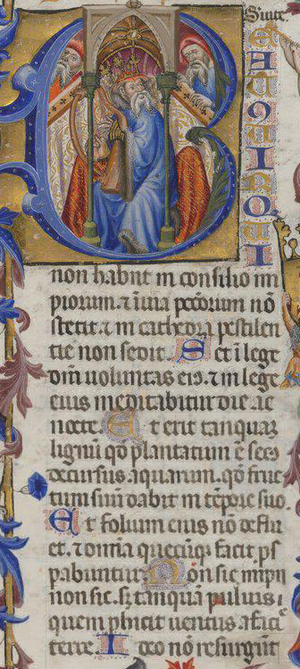 B
non habiit in consilio im
piorum. ⁊ i uia pctorum nō
stetit. ⁊ in cathedra pestilen
tie non sedit. Set i lege
dnī uoluntas eis. ⁊ in lege
eius meditabitur die. ac
nocte. Et erit tanquaz
lignū qd̄ plantatum ē secs
decursus aquarum. qd̄ fruc
tum suum dabit in tēpore suo.
Et folium eius nō deflu
et. ⁊ omīa quecūq; facit. ps
pabuntur. Non sic impii
non sic. s; tanquā puluis
quem phicit uentus a facie
terre. Ideo nō resurgūt